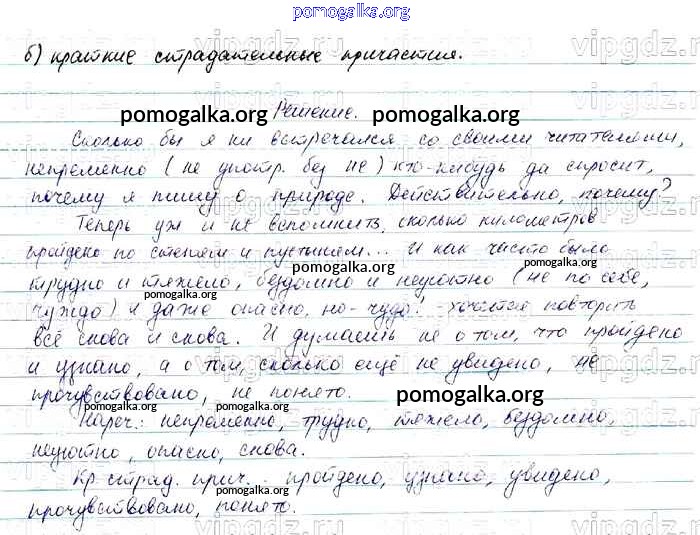 pomogalka.org
б) краткие страдательные причастия.
Решение.
Сколько бы я ни встречался со своими читателями,
непременно (не употр. без не) кто-нибудь да спросит,
почему я пишу о природе. Действительно, почему?
Теперь уж и не вспомнить, сколько километров
пройдено по степям и пустыням... И как часто было
трудно и тяжело, бездомно и неуютно (не по себе,
чуждо) и даже опасно, но - чудо! - хочется повторить
всё снова и снова. И думаешь не о том, что пройдено
и узнано, а о том, сколько ещё не увидено, не
прочувствовано, не понято.
Нареч.: непременно, трудно, тяжело, бездомно,
неуютно, опасно, снова.
Кр. страд. прич.: пройдено, узнано, увидено,
прочувствовано, понято.